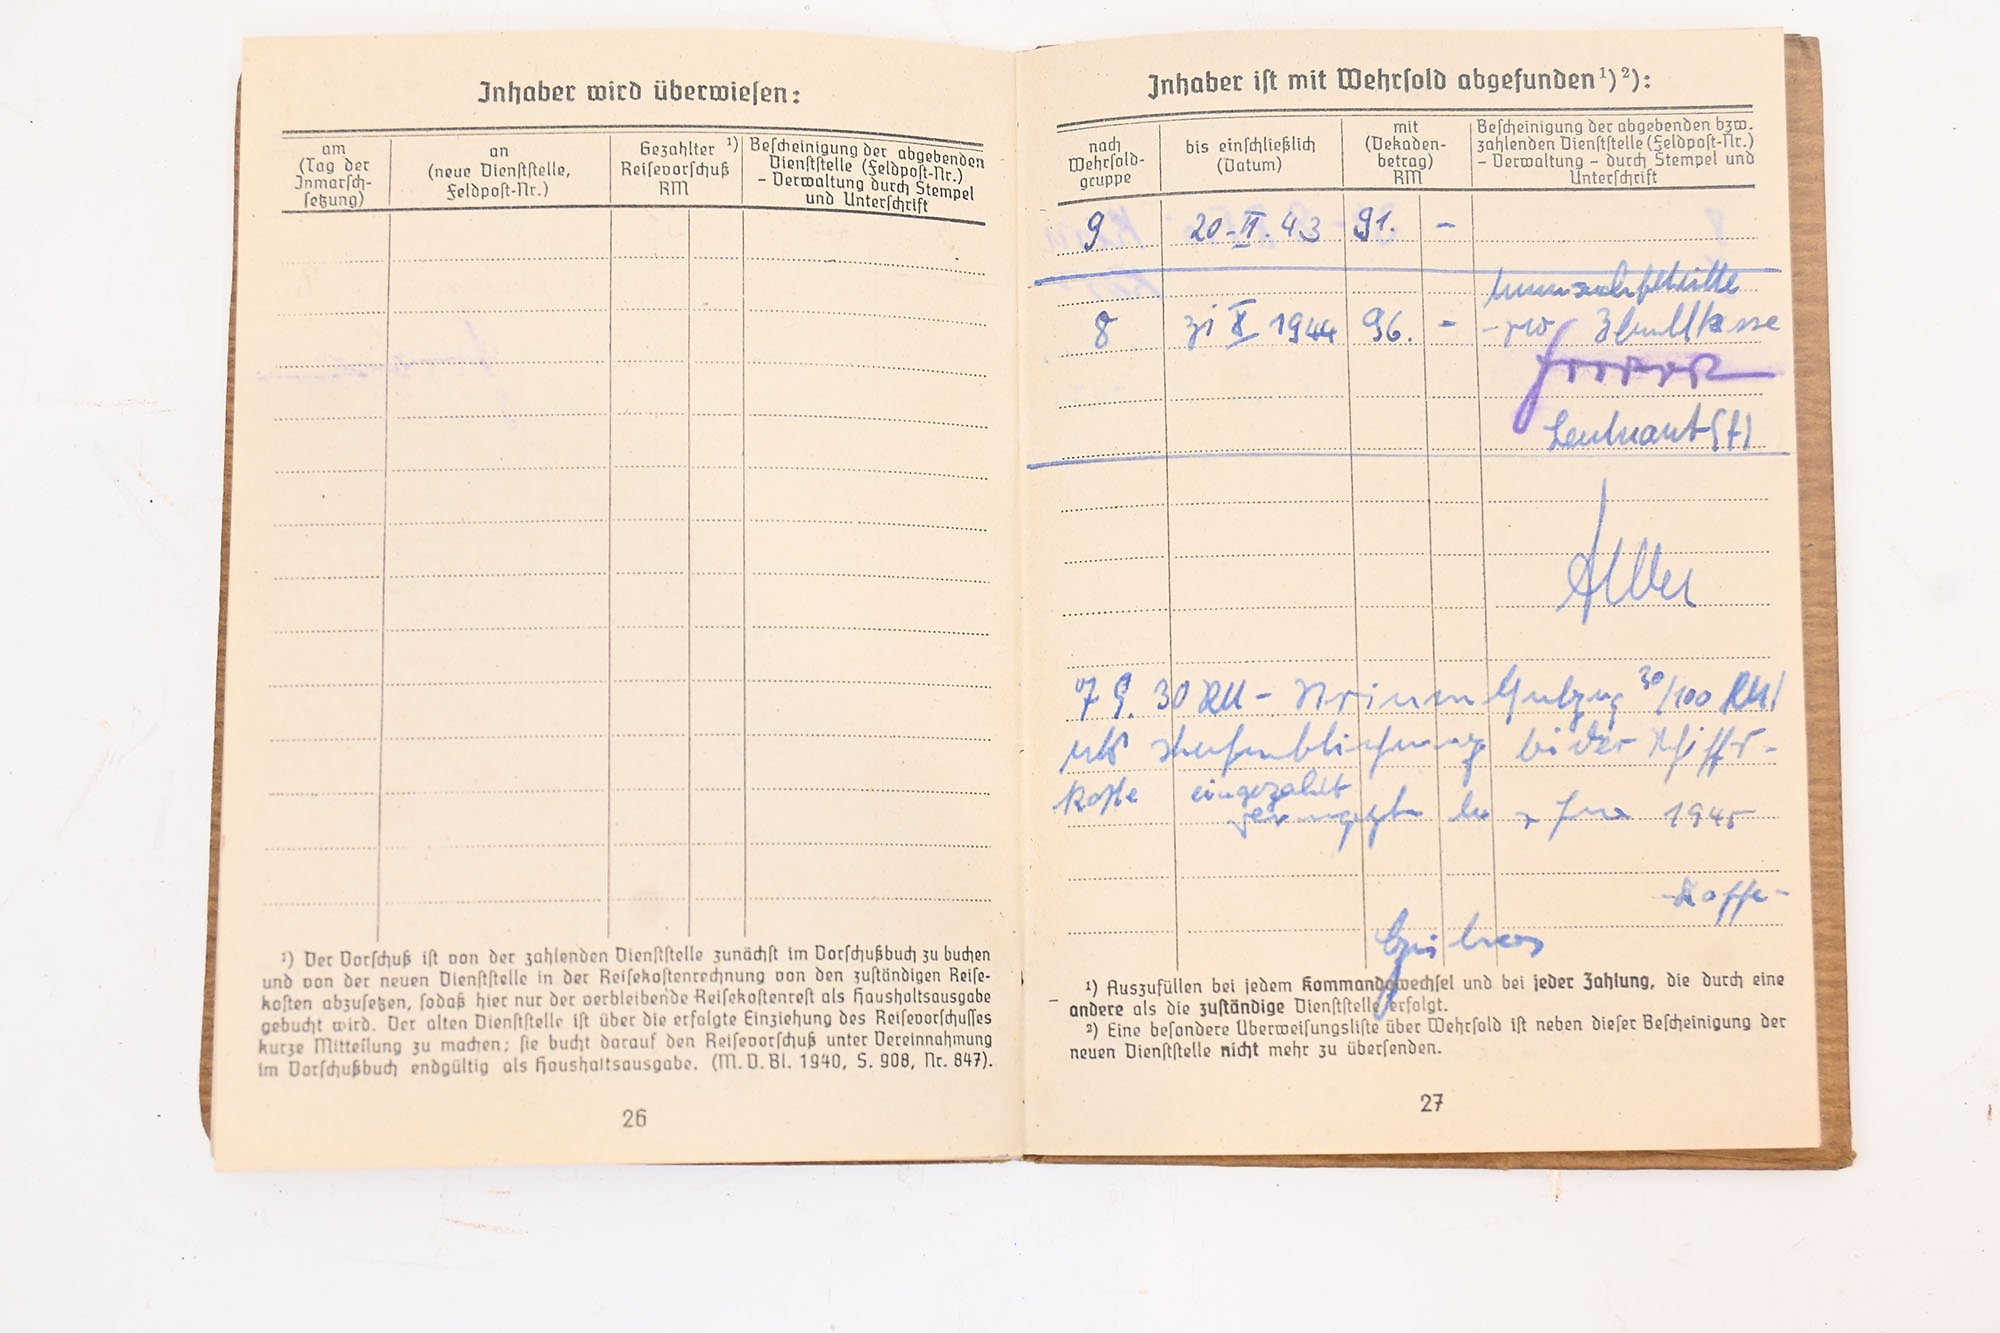 Inhaber wird überwiesen:
am
(Tag der
Inmarsch-
setzung)
an
(neue Dienststelle,
Feldpost-Nr.)
Gezahlter ¹)
Reisevorschuß
RM
Bescheinigung der abgebenden
Dienststelle (Feldpost-Nr.)
- Verwaltung durch Stempel
und Unterschrift
¹) Der Vorschuß ist von der zahlenden Dienststelle zunächst im Vorschußbuch zu buchen
und von der neuen Dienststelle in der Reisekostenrechnung von den zuständigen Reise-
kosten abzusetzen, sodaß hier nur der verbleibende Reisekostenrest als Haushaltsausgabe
gebucht wird. Der alten Dienststelle ist über die erfolgte Einziehung des Reisevorschusses
kurze Mitteilung zu machen; sie bucht darauf den Reisevorschuß unter Vereinnahmung
im Vorschußbuch endgültig als Haushaltsausgabe. (M. D. Bl. 1940, S. 908, Nr. 847).
26
Inhaber ist mit Wehrsold abgefunden¹)²):
nach
Wehrsold-
gruppe
bis einschließlich
(Datum)
mit
(Dekaden-
betrag)
RM
Bescheinigung der abgebenden bzw.
zahlenden Dienststelle (Feldpost-Nr.)
- Verwaltung - durch Stempel und
Unterschrift
9 20-II.43 91. -
8 31 X 1944 96. -
Leutnant
30 RM - 30/100 RM
bei der Schiffs-
kasse eingezahlt
1945
¹) Auszufüllen bei jedem Kommandowechsel und bei jeder Zahlung, die durch eine
andere als die zuständige Dienststelle erfolgt.
²) Eine besondere Überweisungsliste über Wehrsold ist neben dieser Bescheinigung der
neuen Dienststelle nicht mehr zu übersenden.
27